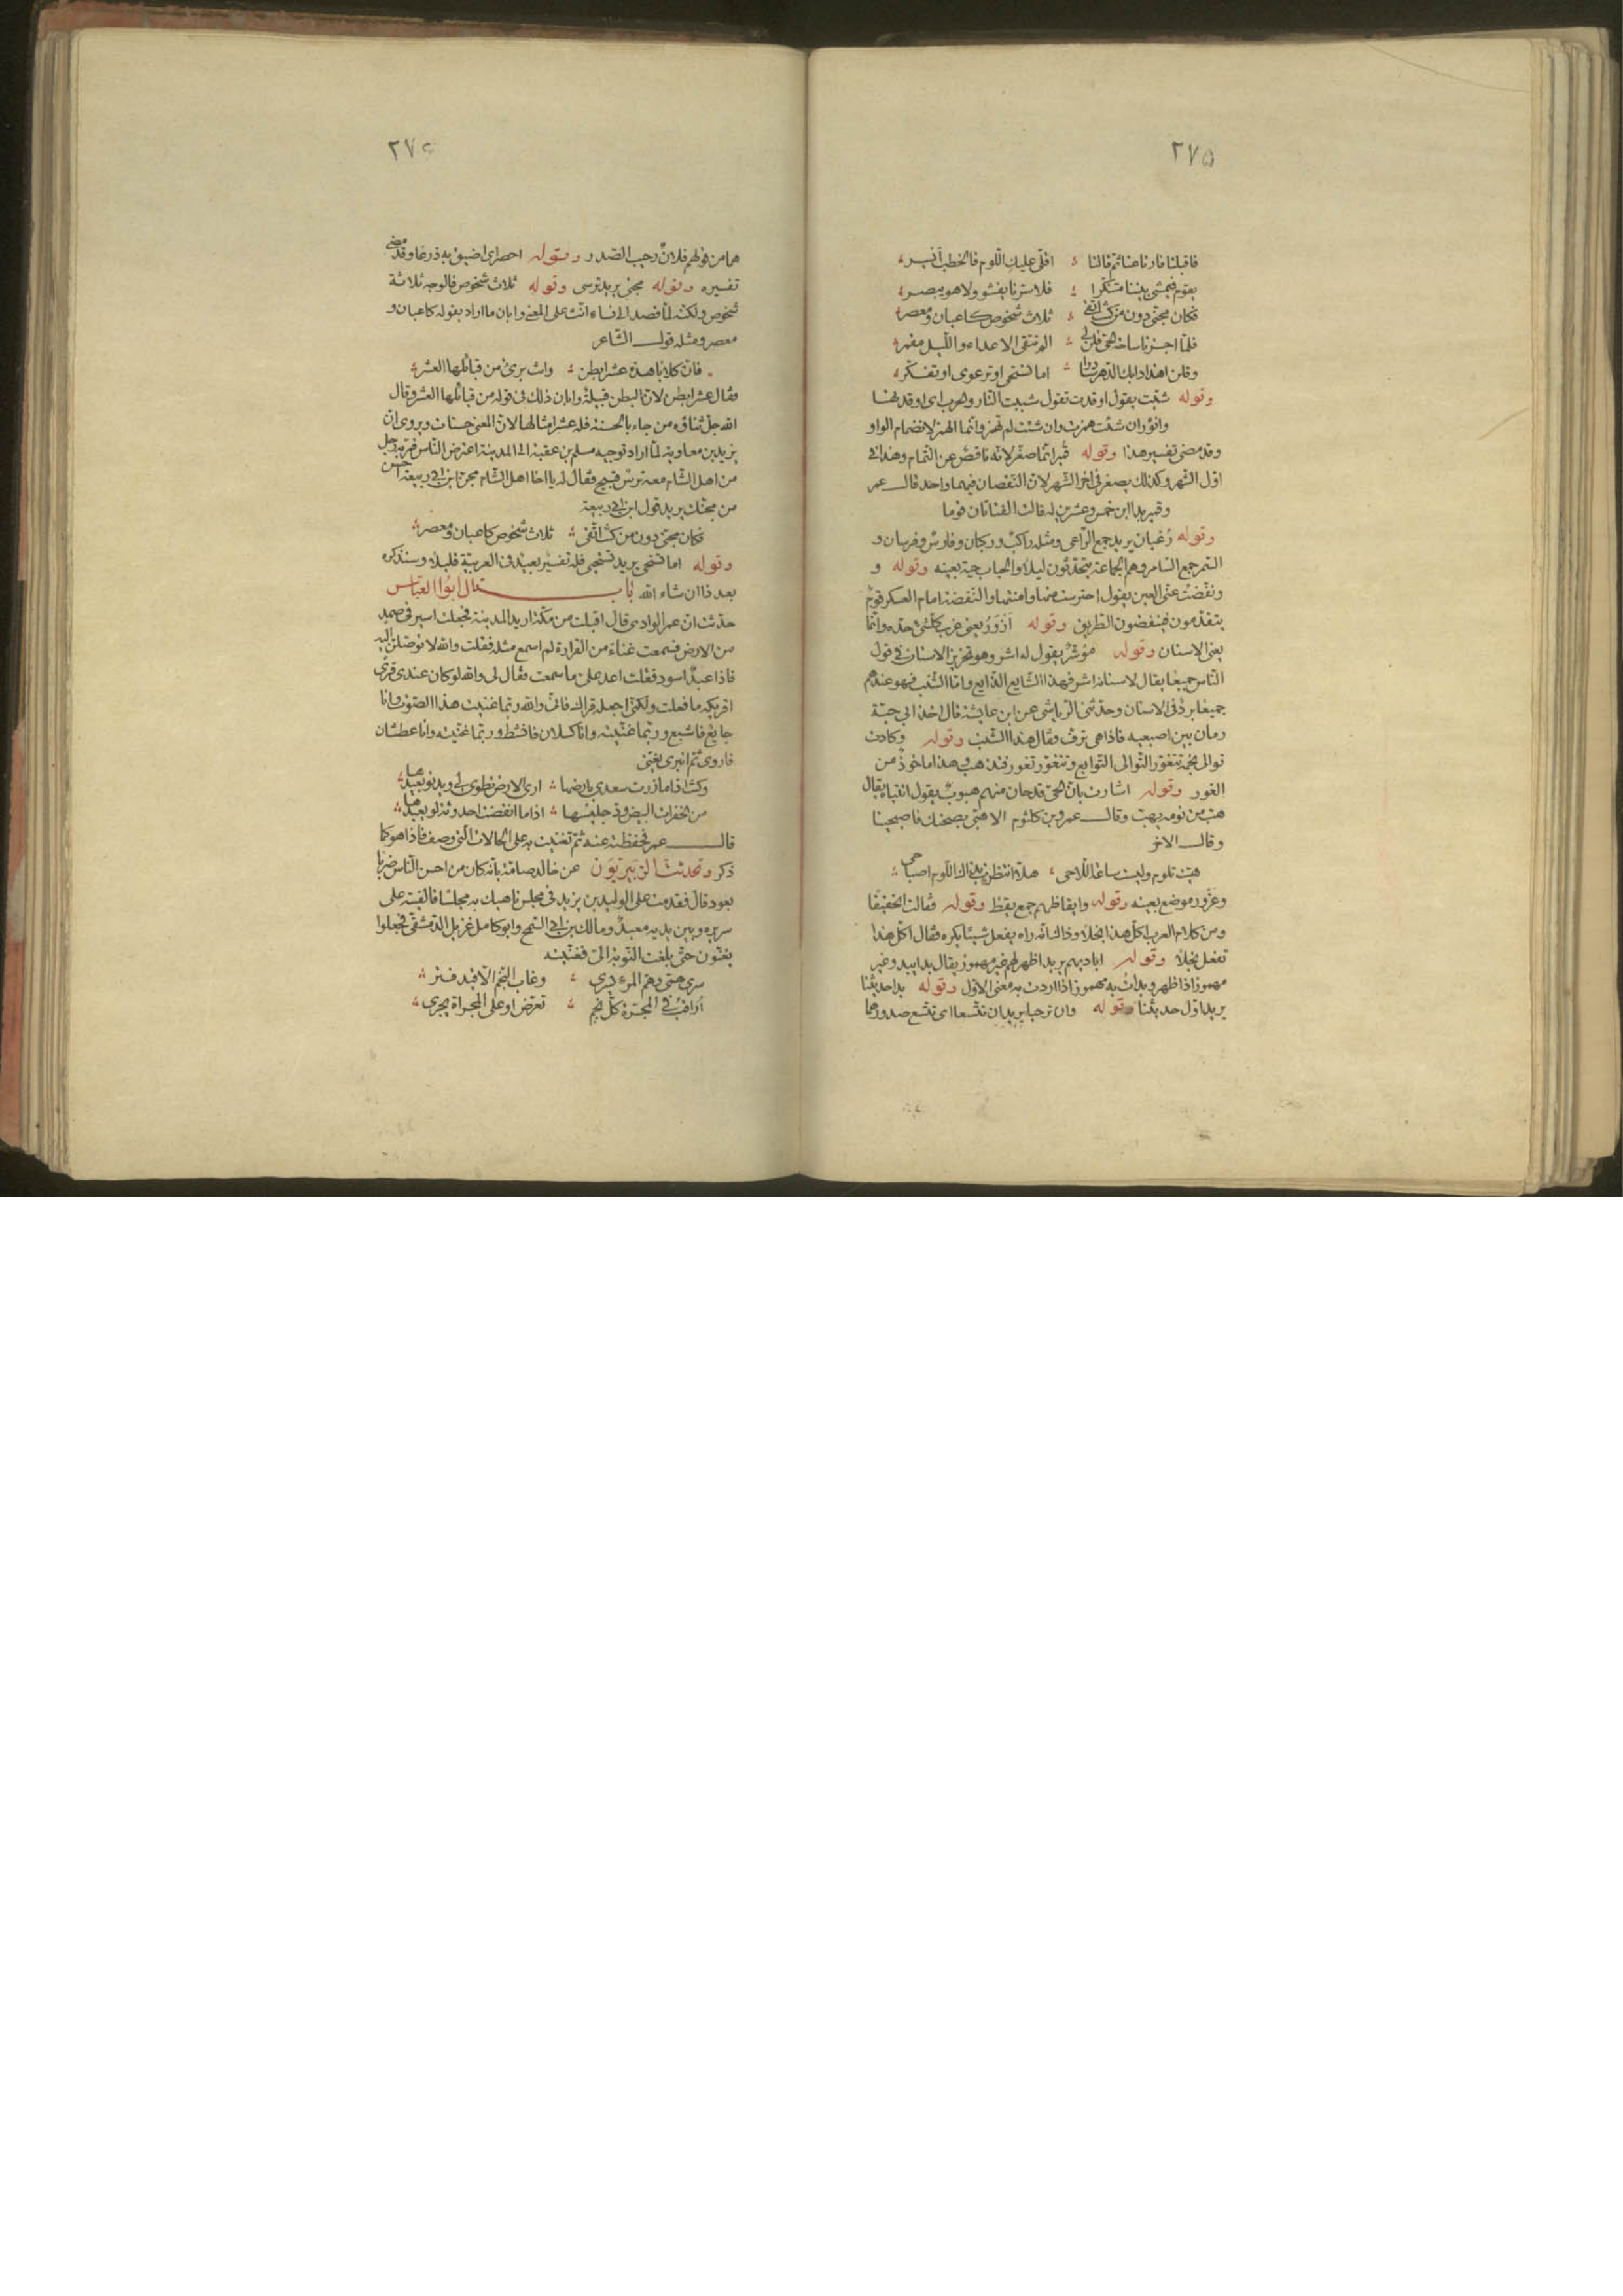 ٢٧٥
فاقبلتا فارتاعتا ثم قالتا ؛ اقلى عليك اللوم فالخطب ايسر
يقوم فيمشى بيننا متنكرا ؛ فلا سرنا يفشو ولا هو يبصر
فكان مجنى دون من كنت اتقى ؛ ثلاث شخوص كاعبان ومعصر
فلما اجزنا ساحة الحى قلن لى ؛ الم تتقى الاعداء والليل مقمر
وقلن اهذا دابك الدهر سادرا ؛ اما تستحى او ترعوى او تفكر
وقوله شبت يقول اوقدت تقول شببت النار والحرب اى اوقدتهما
وانؤر ان شئت همزت وان شئت لم تهمز وانما الهمز لانضمام الواو
وقد مضى تفسير هذا وقوله قمير انما صغر لانه ناقص عن التمام وهذا فى
اول الشهر وكذلك يصغر فى اخر الشهر لان النقصان فيهما واحد قال عمر
وقمير بدا ابن خمس وعشرين له قالت الفتاتان قوما
وقوله رُغيان يريد جمع الراعى ومثله راكب وركبان وفارس وفرسان و
السمر جمع السامر وهم الجماعة يتحدثون ليلا والحباب حية بعينه وقوله و
ونفضت عنى العين يقول احترست منها وامنتها والنفضة امام العسكر قوم
يتقدمون فينفضون الطريق وقوله اَزْوَرُ يعنى غرب كلشئ حده وانما
يعنى الاسنان وقوله مؤشر يقول له اشر وهو تحزيز الاسنان فى قول
الناس جميعا يقال لاسنانه اشر فهذا الشايع الذايع واما الشنب فهو عندهم
جميعا برد فى الاسنان وحدثنى الرياشى عن ابن عايشة قال اخذ ابى حبة
رمان بين اصبعيه فاذا هى ترف فقال هذا الشنب وقوله وكادت
توالى نجمه تتغور التوالى التوابع وتتغور تغور فتذهب وهذا ماخوذ من
الغور وقوله اشارت بان الحى قد حان منهم هبوب يقول انتباه يقال
هب من نومه يهب وقال عمرو بن كلثوم الا هبى بصحنك فاصبحينا
وقال الاخر
هبت تلوم وليست ساعة اللاحى ؛ هلا انتظرت بهذا اللوم اصباحى ؛
وعزور موضع بعينه وقوله وايقاظهم جمع يقظ وقوله فقالت اتحقيقًا
ومن كلام العرب اكل هذا بخلا وذاك انه راه يفعل شيئا يكره فقال اكل هذا
تفعل بخلا وقوله اباديهم يريد اظهر لهم غير مهموز يقال بدا يبدو غير
مهموز اذا ظهر وبدات به مهموز اذا اردت به معنى الاول وقوله بدا حديثنا
يريد اول حديثنا وقوله وان ترحبا يريد ان تتسعا اى تتسع صدورهما
٢٧٤
هما من قولهم فلان رحيب الصدر وقوله احصر اى اضيق به ذرعا وقد مضى
تفسيره وقوله مجنى يريد ترسى وقوله ثلاث شخوص فالوجه ثلاثة
شخوص ولكنه لما قصد الى نساء انث على المعنى وابان ما اراد بقوله كاعبان و
معصر ومثله قول الشاعر
فان كلابا هذه عشر ابطن ؛ وانت برئ من قبائلها العشر ؛
فقال عشر ابطن لان البطن قبيلة وابان ذلك فى قوله من قبائلها العشر وقال
الله جل ثناؤه من جاء بالحسنة فله عشر امثالها لان المعنى حسنات ويروى ان
يزيد بن معاوية لما اراد توجيه مسلم بن عقبة الى المدينة اعترض الناس فمر به رجل
من اهل الشام معه ترس قبيح فقال له يا اخا اهل الشام مجن ابن ابى ربيعة احسن
من مجنك يريد قول ابن ابى ربيعة
فكان مجنى دون من كنت اتقى ؛ ثلاث شخوص كاعبان ومعصر ؛
وقوله اما تستحى يريد تستحيى فله تفسير بعيد فى العربية قليلا وسنذكره
بعد ذا ان شاء الله باب قال ابو العباس
حدثت ان عمر الوادى قال اقبلت من مكة اريد المدينة فجعلت اسير فى صمد
من الارض فسمعت غناء من القرارة لم اسمع مثله فقلت والله لا توصلن اليه
فاذا عبد اسود فقلت اعد على ما سمعت فقال لى والله لو كان عندى قرى
اقريكه ما فعلت ولكنى اجعله قراك فانى والله ربما غنيت هذا الصوت وانا
جايع فاشبع وربما غنيته وانا كسلان فانشط وربما غنيته وانا عطشان
فاروى ثم انبرى يغنى
وكنت اذا ما زرت سعدى بارضها ؛ ارى الارض تطوى لى ويدنو بعيدها ؛
من الخفرات البيض ود جليسها ؛ اذا ما انقضت احدوثة لو يعيدها ؛
قال عمر فحفظته عنه ثم تغنيت به على الحالات التى وصف فاذا هو كما
ذكر وتحدث الزبيريون عن خالد صامة بانه كان من احسن الناس ضربا
بعود قال فقدمت على الوليد بن يزيد فى مجلس ناهيك به مجلسا فالفيته على
سريره وبين يديه معبد ومالك بن ابى السمح وابو كامل غزيل الدمشقى فجعلوا
يغنون حتى بلغت النوبة الى فغنيته
سرى همى وهم المرء يسرى ؛ وغاب النجم الا قيد فتر ؛
اراقب فى المجرة كل نجم ؛ تعرض او على المجراة يجرى ؛